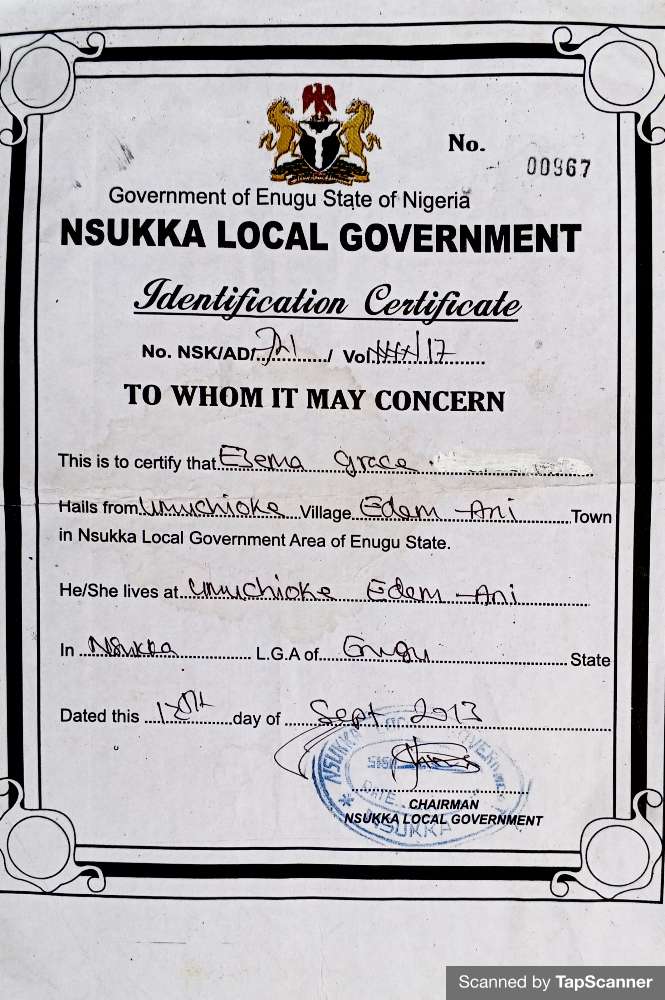 No. 00967
Government of Enugu State of Nigeria
NSUKKA LOCAL GOVERNMENT
Identification Certificate
No. NSK/AD/...721.../ Vol.......17......
TO WHOM IT MAY CONCERN
This is to certify that Ezema Grace
Hails from Umuchioke Village Edem - Ani Town
in Nsukka Local Government Area of Enugu State.
He/She lives at Umuchioke Edem - Ani
In Nsukka L.G.A of Enugu State
Dated this day of Sept 2013
NSUKKA
DATE
NSUKKA
CHAIRMAN
NSUKKA LOCAL GOVERNMENT
Scanned by TapScanner